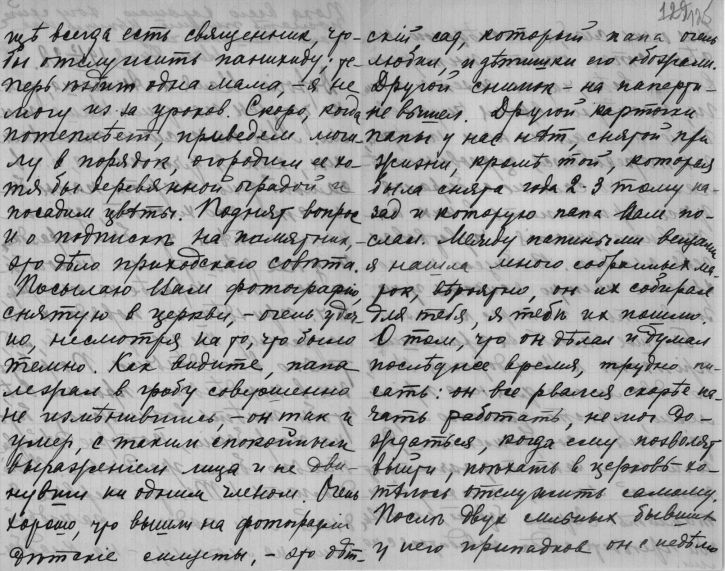 гдѣ всегда есть священник, что-
бы отслужить панихиду; те-
перь ходит одна мама, – я не
могу из за уроков. Скоро, когда
потеплѣет, приведем моги-
лу в порядок, огородим ее хо-
тя бы деревянной оградой и
посадим цвѣты. Поднят вопрос
и о подпискѣ на памятник, –
это дѣло приходскаго совѣта.
Посылаю Вам фотографію,
снятую в церкви, – очень удач-
но, несмотря на то, что было
темно. Как видите, папа
лежал в гробу совершенно
не измѣнившись, – он так и
умер, с таким спокойным
выраженіем лица и не дви-
нувши ни одним членом. Очень
хорошо, что вышли на фотографіи
дѣтскіе силуеты, – это дѣт-
скій сад, который папа очень
любил, и дѣтишки его обожали.
Другой снимок – на паперти –
не вышел. Другой карточки
папы у нас нѣт снятой при
жизни, кромѣ той, которая
была снята года 2-3 тому на-
зад и которую папа Вам по-
слал. Между папиными вещами
я нашла много собранных ма-
рок, вѣроятно, он их собирал
для тебя, я тебѣ их пошлю.
О том, что он дѣлал и думал
послѣднее время, трудно пи-
сать: он все рвался скорѣе на-
чать работать, не мог до-
ждаться, когда ему позволят
выйти, поѣхать в церковь – хо-
тѣлось отслужить самому.
Послѣ двух сильных бывших
у него припадков он с недѣлю